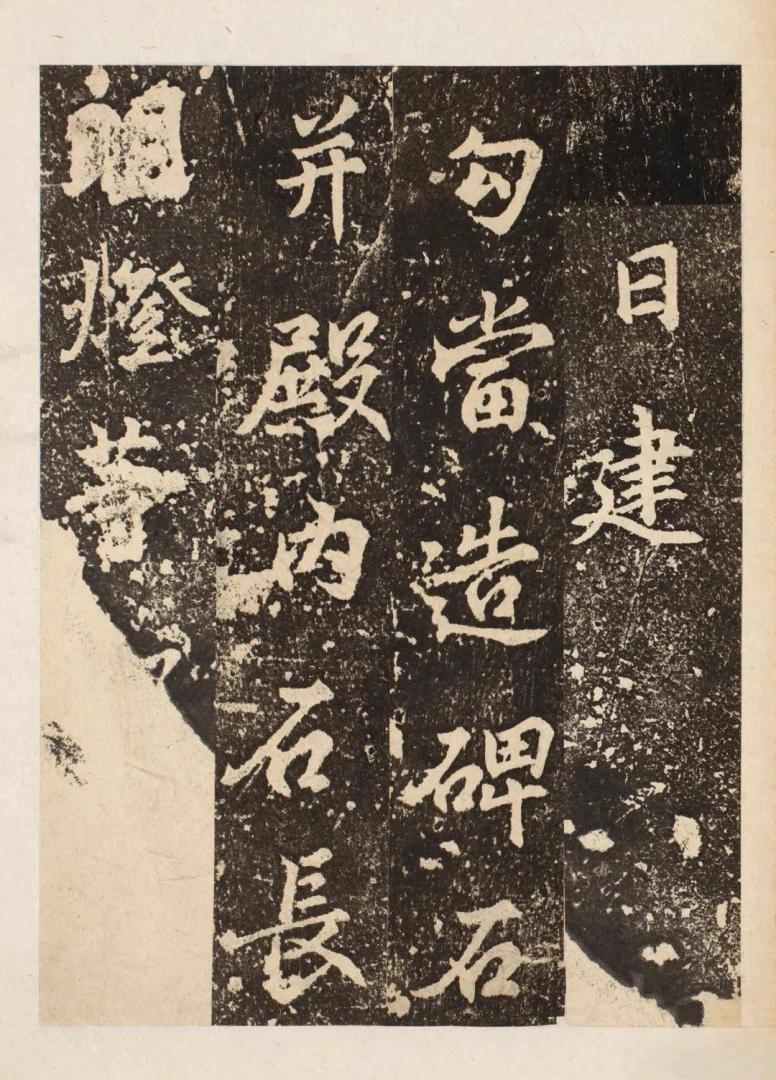 日建
勾當造碑石
并殿內石長
明燈等